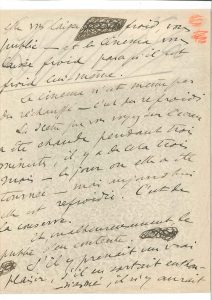 elle me laisse froid un
public — et le cinéma me
laisse froid parce qu'il est
froid lui-même.
Le cinéma n'est même pas
du réchauffé — c'est du refroidi
La scène que vous voyez sur l'écran
a été chaude pendant trois
minutes, il y a de cela trois
mois — le jour où elle a été
tournée — mais aujourd'hui
elle est refroidie! C'est de
la conserve.
Et malheureusement le
public s'en contente.
S'il y prenait un vrai
plaisir, s'il en sortait enthou-
siasmé, il n'y aurait